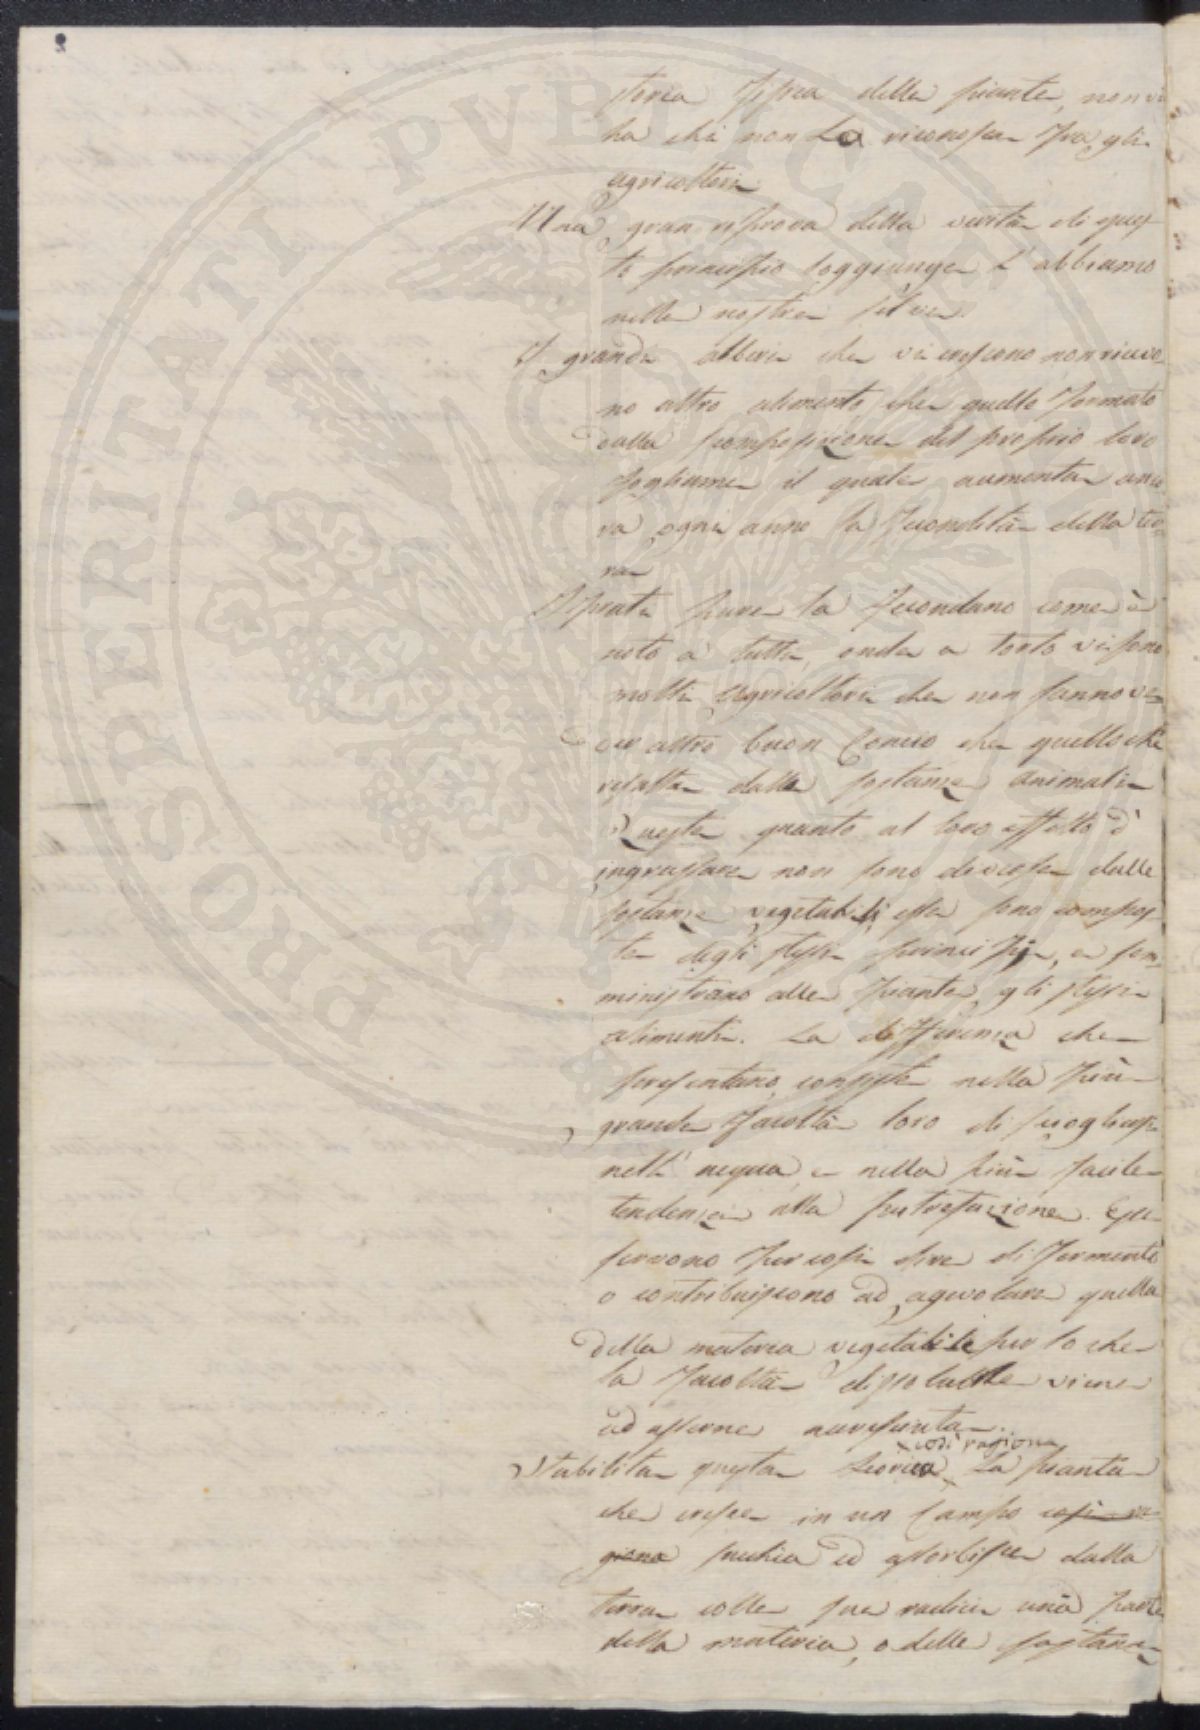 storia fisica delle piante, non vi
ha chi non La riconosca fra gli
agricoltori.
Una gran riprova della verità di ques
to principio soggiunge L'abbiamo
nelle nostre selve.
I grandi alberi che vi crescono non ricevo
no altro alimento che quello formato
dalla scomposizione del proprio loro
fogliame il quale aumenta anco
ra ogni anno la fecondità della ter
ra
I prati pure la fecondano come è
noto a tutti, onde a torto vi sono
molti Agricoltori che non sanno ve
der altro buon Concio che quello che
risulta dalle sostanze animali
Queste quanto al loro effetto d'
ingrassare non sono diverse dalle
sostanze vegetabili esse sono compos
te degli stessi principj, e som
ministrano alle piante gli stessi
alimenti. La differenza che
presentano consiste nella più
grande facoltà loro di sciogliersi
nell'acqua, e nella più facile
tendenza alla putrefazione. Esse
servono per così dire di fermento
o contribuiscono ad agevolare quella
della materia vegetabile per lo che
la facoltà dissolubile viene
ad esserne accresciuta.
così ragiona
Stabilita questa teorica La pianta
che cresce in un Campo così ra
giona succhia ed assorbisce dalla
terra colle sue radici una parte
della materia, o delle sostanze